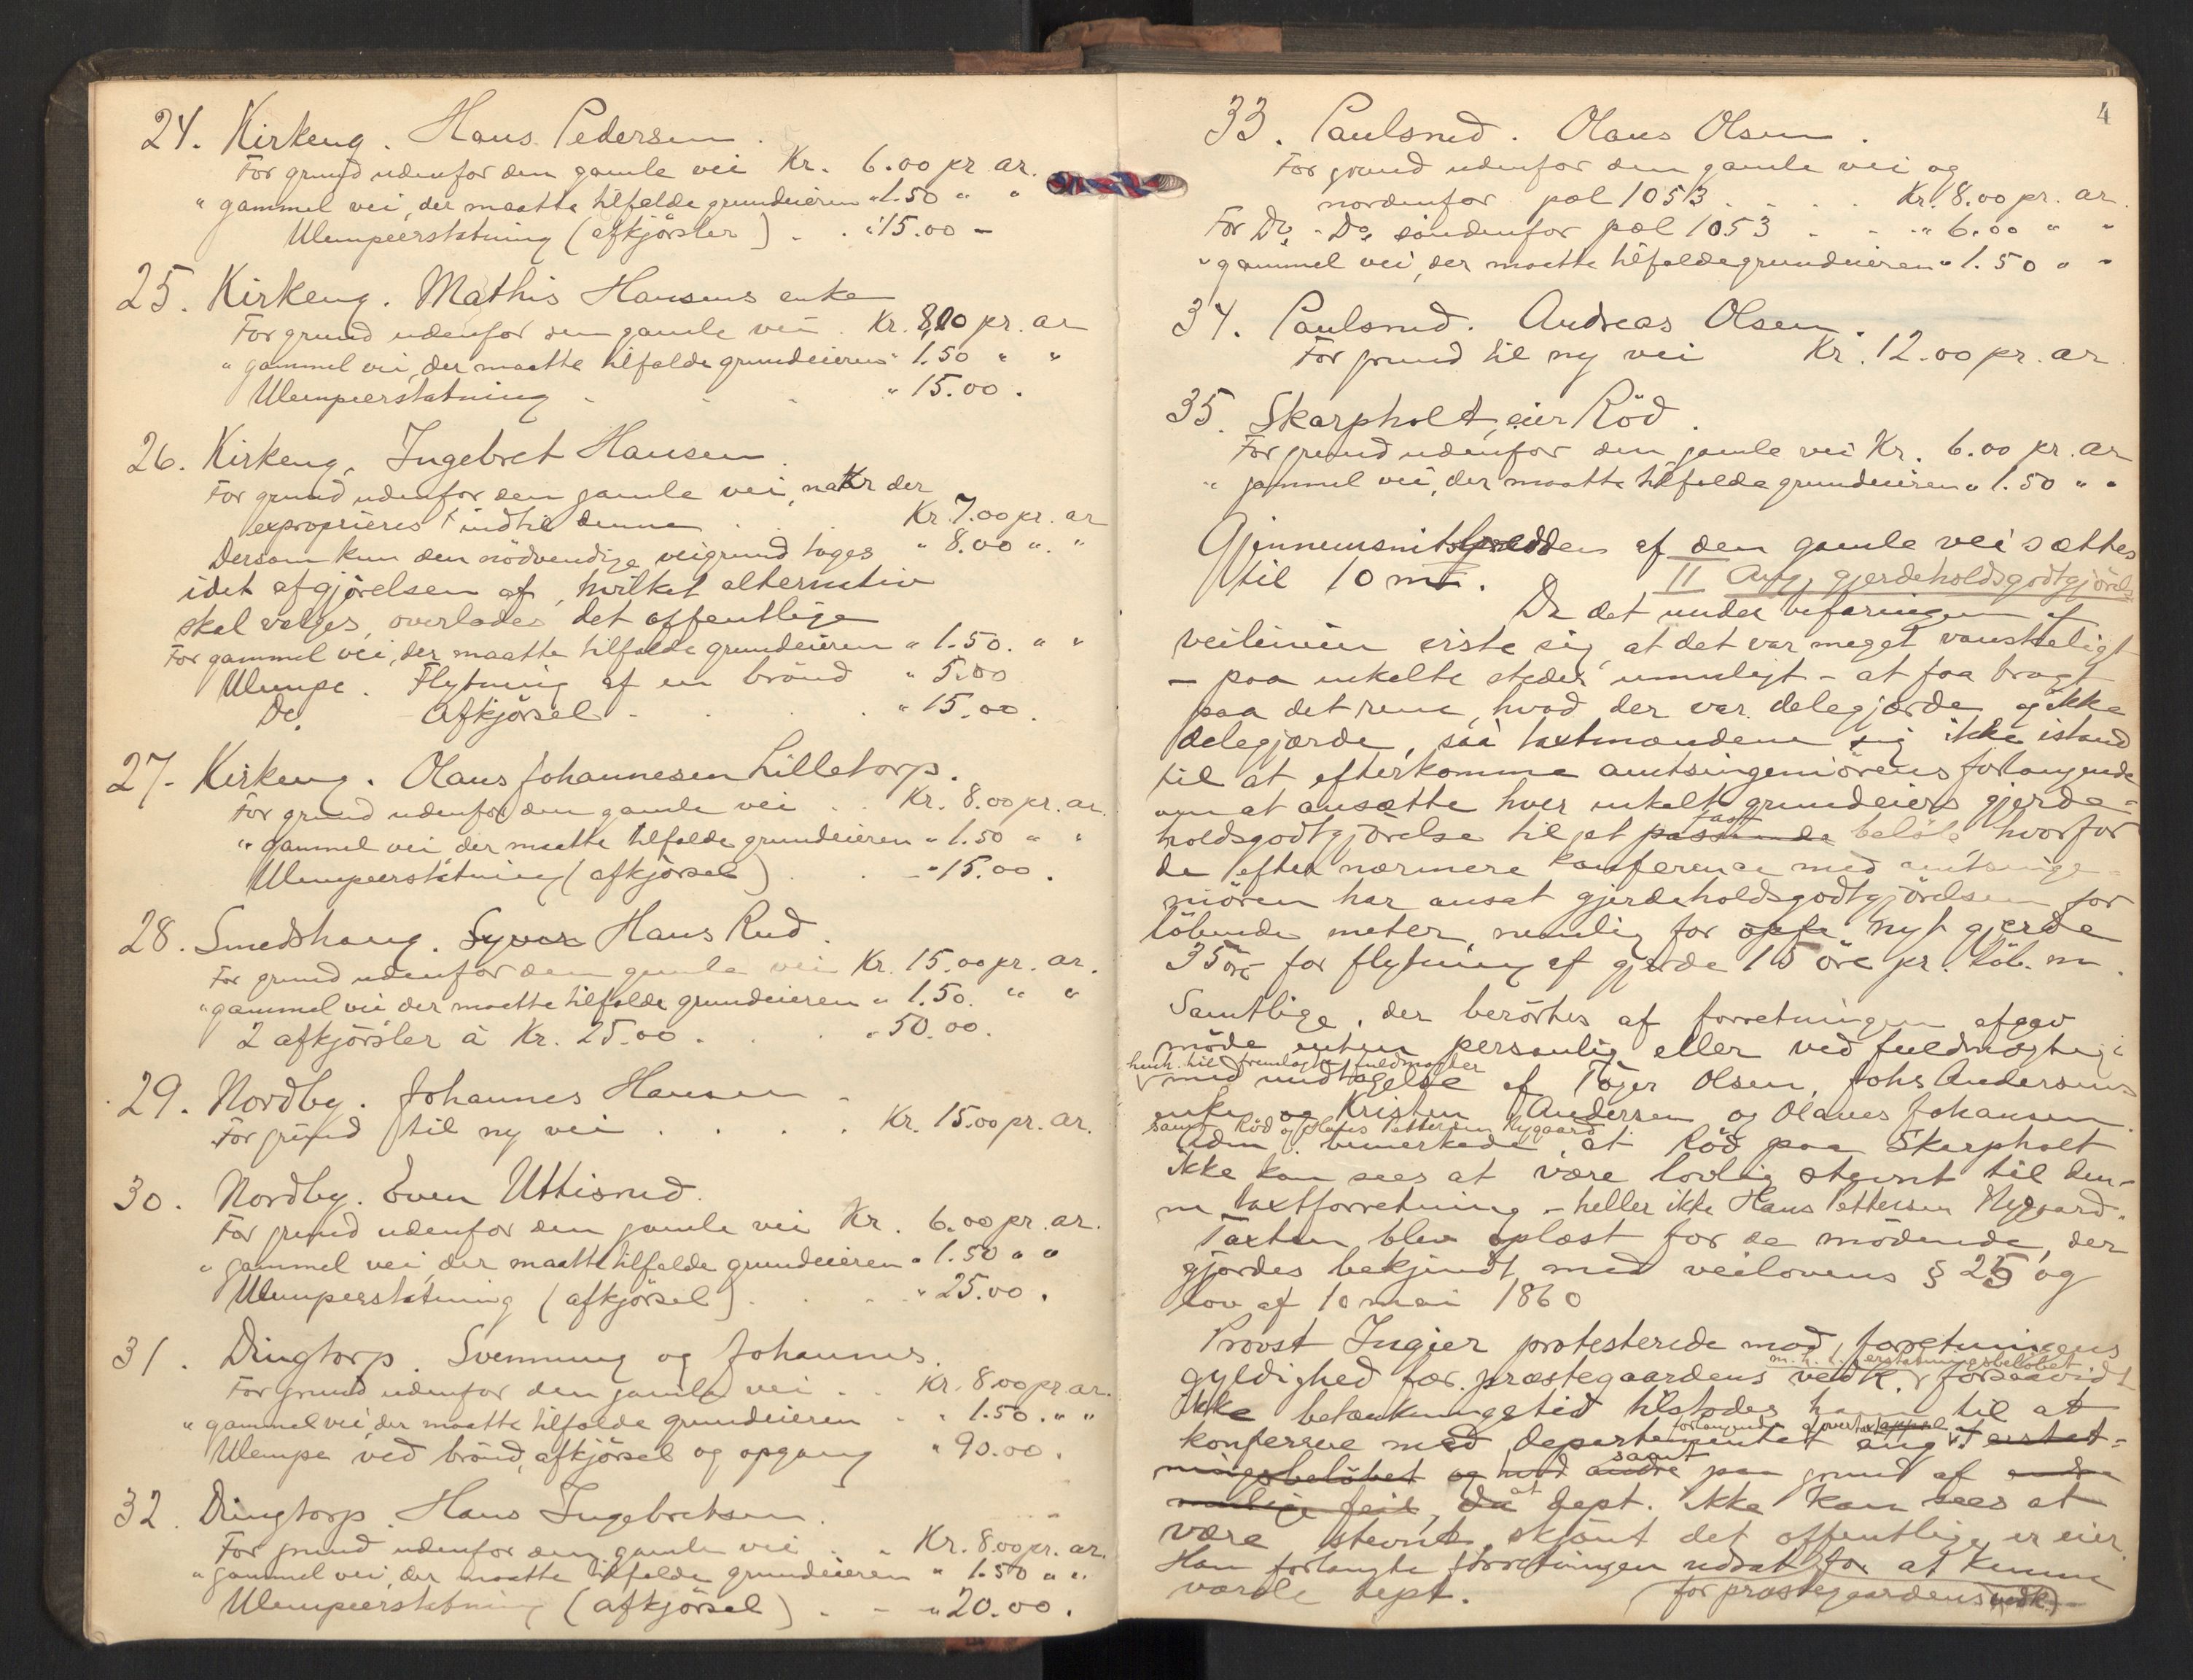 24. Kirkeng. Hans Pedersen.
For grund udenfor den gamle vei Kr. 6.00 pr ar.
" gammel vei, der maatte tilfalde grundeieren " 1.50 " "
Ulempeerstatning (afkjörsler) . . " 15.00 -
25. Kirkeng. Mathis Hansens enke
For grund udenfor den gamle vei . Kr. 8,00 pr. ar
" gammel vei, der maatte tilfalde grundeieren " 1.50 " "
Ulempeerstatning - - - " 15.00 .
26. Kirkeng, Ingebret Hansen.
For grund udenfor den gamle vei, naar der
exproprieres indtil denne . . . Kr. 7.00 pr. ar
Dersom kun den nödvendige veigrund tages " 8.00 " "
idet afgjörelsen af, hvilket alternativ
skal vælges, overlades det offentlige
For gammel vei, der maatte tilfalde grundeieren " 1.50. " "
Ulempe. Flytning af en brönd " 5.00
Do. Afkjörsel - . . . " 15.00.
27. Kirkeng. Olaus Johannesen Lilletorp.
For grund udenfor den gamle vei . . Kr. 8.00 pr. ar.
" gammel vei der maatte tilfalde grundeieren " 1.50 " "
Ulempeerstatning (afkjörsel) . . - " 15.00 .
28. Smedshaug. Syver Hans Rud.
For grund udenfor den gamle vei Kr. 15.00 pr. ar.
" gammel vei der maatte tilfalde grundeieren " 1.50. " "
2 afkjörsler à Kr. 25.00 . . . " 50.00.
29. Nordby. Johannes Hansen -
For grund til ny vei . . . . Kr. 15.00 pr. ar.
30. Nordby. Even Uttisrud.
For grund udenfor den gamle vei Kr. 6.00 pr. ar.
" gammel vei, der maatte tilfalde grundeieren " 1.50 " "
Ulempeerstatning (afkjörsel) . . . " 25.00 .
31. Dingtorp. Svenning og Johannes.
For grund udenfor den gamle vei . . Kr. 8.00 pr ar.
" gammel vei, der maatte tilfalde grundeieren . " 1.50. " "
Ulempe ved brönd, afkjörsel og opgang " 90.00 .
32. Dingtorp. Hans Ingebretsen.
For grund udenfor den gamle vei . . Kr. 8.00 pr. ar.
" gammel vei, der maatte tilfalde grundeieren " 1.50 " "
Ulempeerstatning (afkjörsel) . - " 20.00 .
4
33. Paulsrud. Olaus Olsen.
For grund udenfor den gamle vei og
nordenfor pæl 1053 . . . . Kr. 8.00 pr. ar.
For Do. Do. söndenfor pæl 1053 . - . " 6.00 " "
" gammel vei, der maatte tilfalde grundeieren " 1.50 " "
34. Paulsrud. Andreas Olsen.
For grund til ny vei Kr. 12.00 pr. ar
35. Skarpholt, eier Röd.
For grund udenfor den gamle vei Kr. 6.00 pr. ar
" gammel vei, der maatte tilfalde grundeieren " 1.50 " "
Gjennemsnitsbredden af den gamle vei sættes
til 10 m. II Ang. gjerdeholdsgodtgjörelse
Da det under befaringen af
veilinien viste sig, at det var meget vanskeligt
- paa enkelte steder umuligt - at faa bragt
paa det rene, hvad der var delegjærde og ikke
delegjærde, saa taxtmændene sig ikke istand
til at efterkomme amtsingeniörens forlangende
om at ansætte hver enkelt grundeiers gjerde-
fast
holdsgodtgjörelse til et passende belöb, hvorfor
de efter nærmere konferance med amtsinge-
niören har ansat gjerdeholdsgodtgjörelsen for
löbende meter, nemlig for nyt gjerde
35 öre for flytning af gjerde 15 öre pr. löb. m.
Samtlige, der berörtes af forretningen afgav
möde enten personlig eller ved fuldmægtig
henh. til fremlagte fuldmagter
med undtagelse af Töger Olsen, Johs Andersens
enke og Kristen Andersen og Olaves Johansen
samt Röd og Hans Pettersen Nygaard
bemerkede, at Röd paa Skarpholt
ikke kan sees at være lovlig stevnt til den-
ne taxtforretning - heller ikke Hans Pettersen Nygaard.
Taxten blev oplæst for de mödende, der
gjordes bekjendt med veilovens § 25 og
lov af 10 mai 1860
Provst Ingier protesterede mod forretningens
m. h. t. erstatningsbelöbet
gyldighed for præstegaardens vedk. forsaavidt
ikke betænkningstid tilstodes ham til at
forlangende af overtaxt appel
konferere med departementet ang. erstat-
ningsbelöbet og samt paa grund af
feil, at dept. ikke kan sees at
være stevnt, skjönt det offentlige er eier.
Han forlangte forretningen udsat for at kunne
varsle dept. (for præstegaardens vedk.)